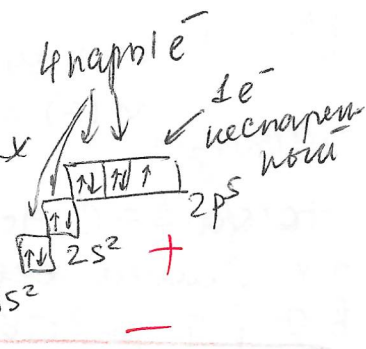 4 пары ē
1ē
неспарен-
ный
x
↑↓ ↑↓ ↑
2p⁵
↑↓
2s²
↑↓
s²
+
−